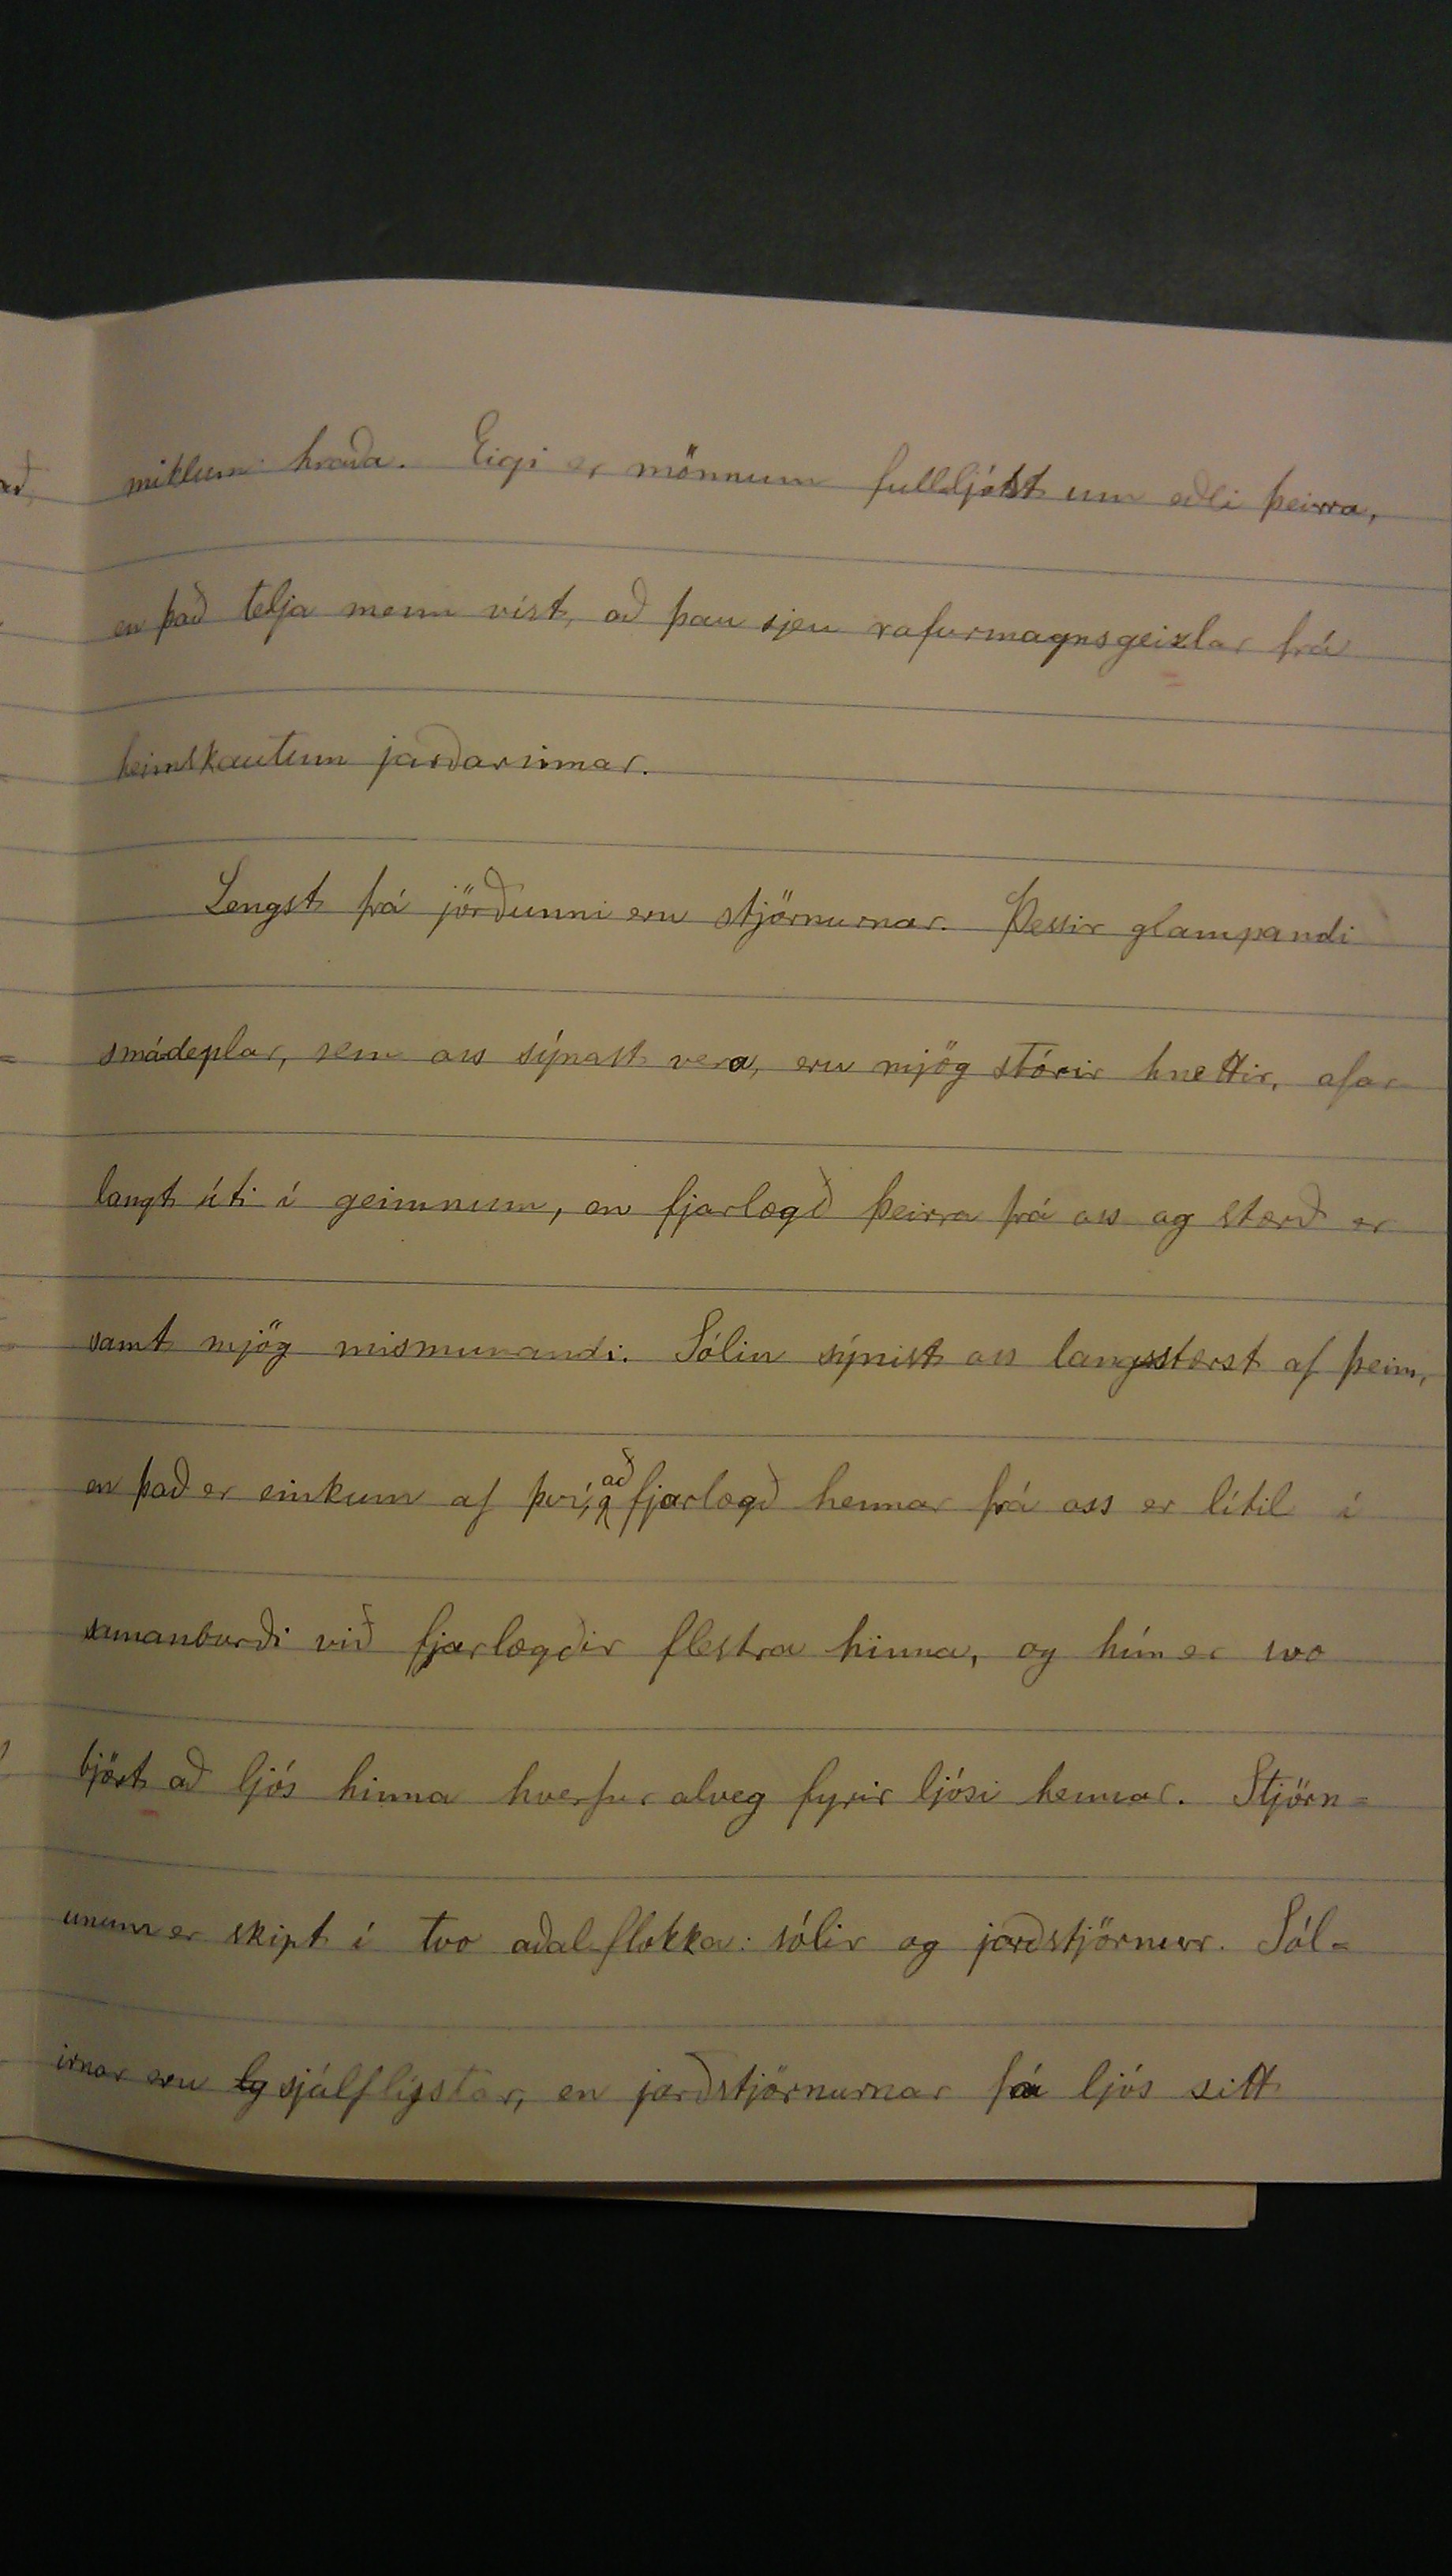 miklum hraða. Eigi er mönnum fullljóst um eðli þeirra,
en það telja menn víst, að þau sjeu rafurmagnsgeizlar frá
heimskautum jarðarinnar.
Lengst frá jörðunni eru stjörnurnar. Þessir glampandi
smádeplar, sem oss sýnast vera, eru mjög stórir hnettir, afar
langt úti í geimnum, en fjarlægð þeirra frá oss og stærð er
samt mjög mismunandi. Sólin sýnist oss langstærst af þeim,
en það er einkum af því, að fjarlægð hennar frá oss er lítil í
samanburði við fjarlægðir flestra hinna, og hún er svo
björt að ljós hinna hverfur alveg fyrir ljósi hennar. Stjörn=
unum er skipt í tvo aðalflokka: sólir og jarðstjörnur. Sól=
irnar eru sjálflýstar, en jarðstjörnurnar fá ljós sitt